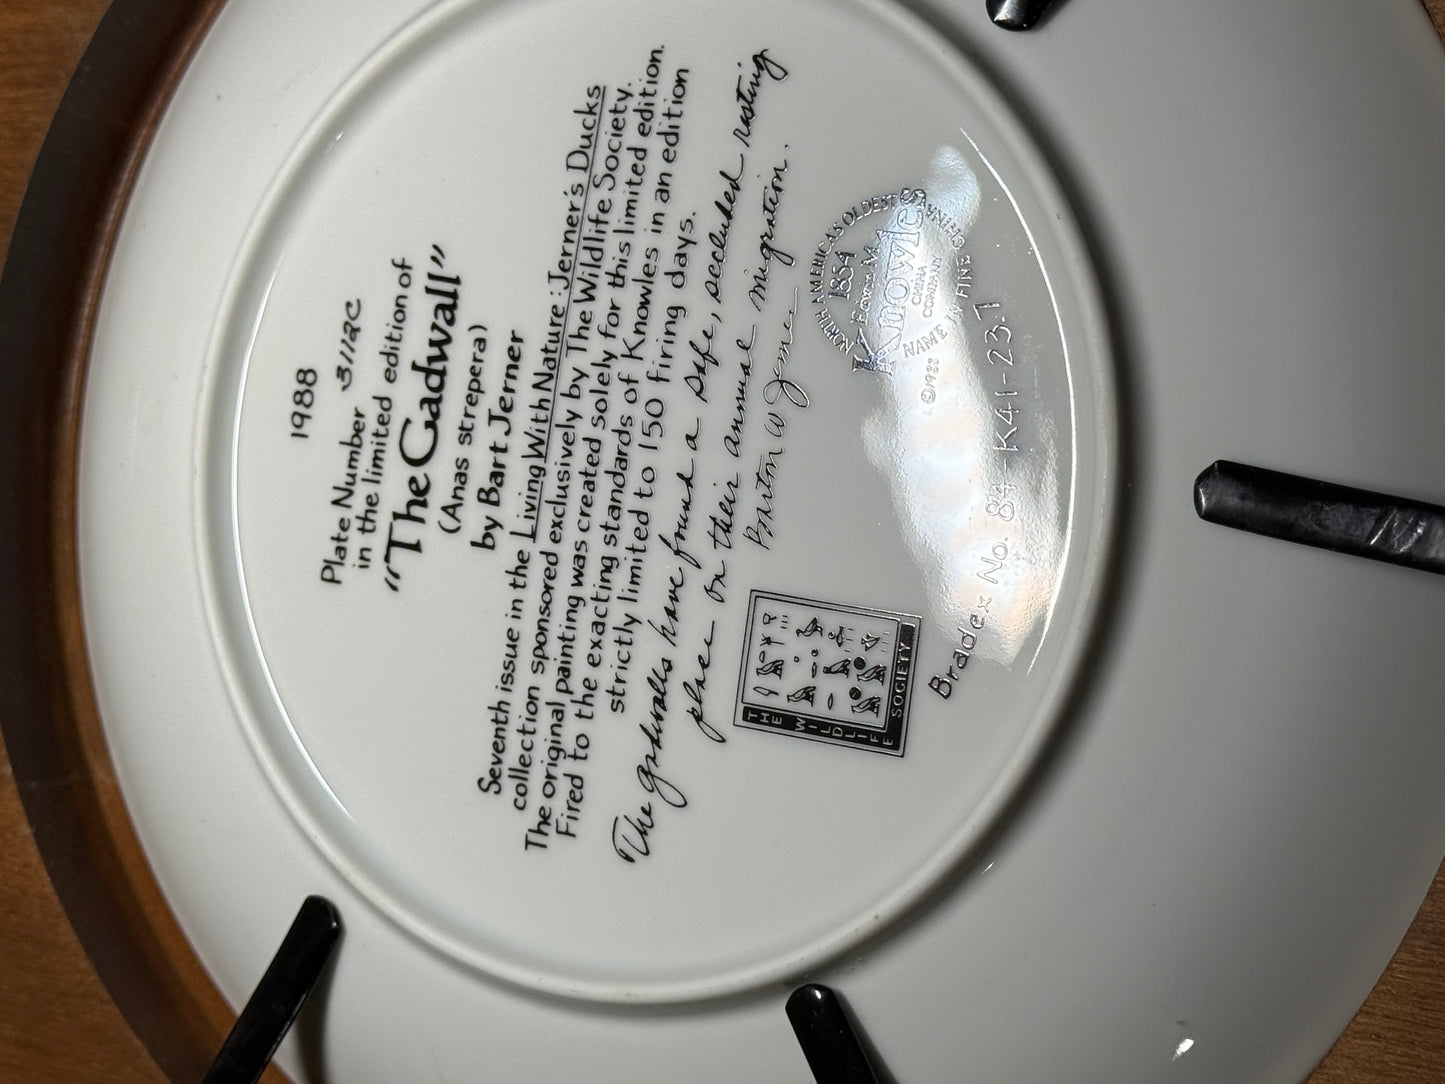 1988
Plate Number 3112C
in the limited edition of
"The Gadwall"
(Anas strepera)
by Bart Jerner
Seventh issue in the Living With Nature: Jerner's Ducks
collection sponsored exclusively by The Wildlife Society.
The original painting was created solely for this limited edition.
Fired to the exacting standards of Knowles in an edition
strictly limited to 150 firing days.
The gadwalls have found a safe, secluded resting
place on their annual migration.
Barton W Jerner
THE WILDLIFE SOCIETY
NORTH AMERICA'S OLDEST
1854
Edwin M.
Knowles
CHINA
COMPANY
NAME IN FINE CHINA
©1988
Bradex No. 84-K41-23.7